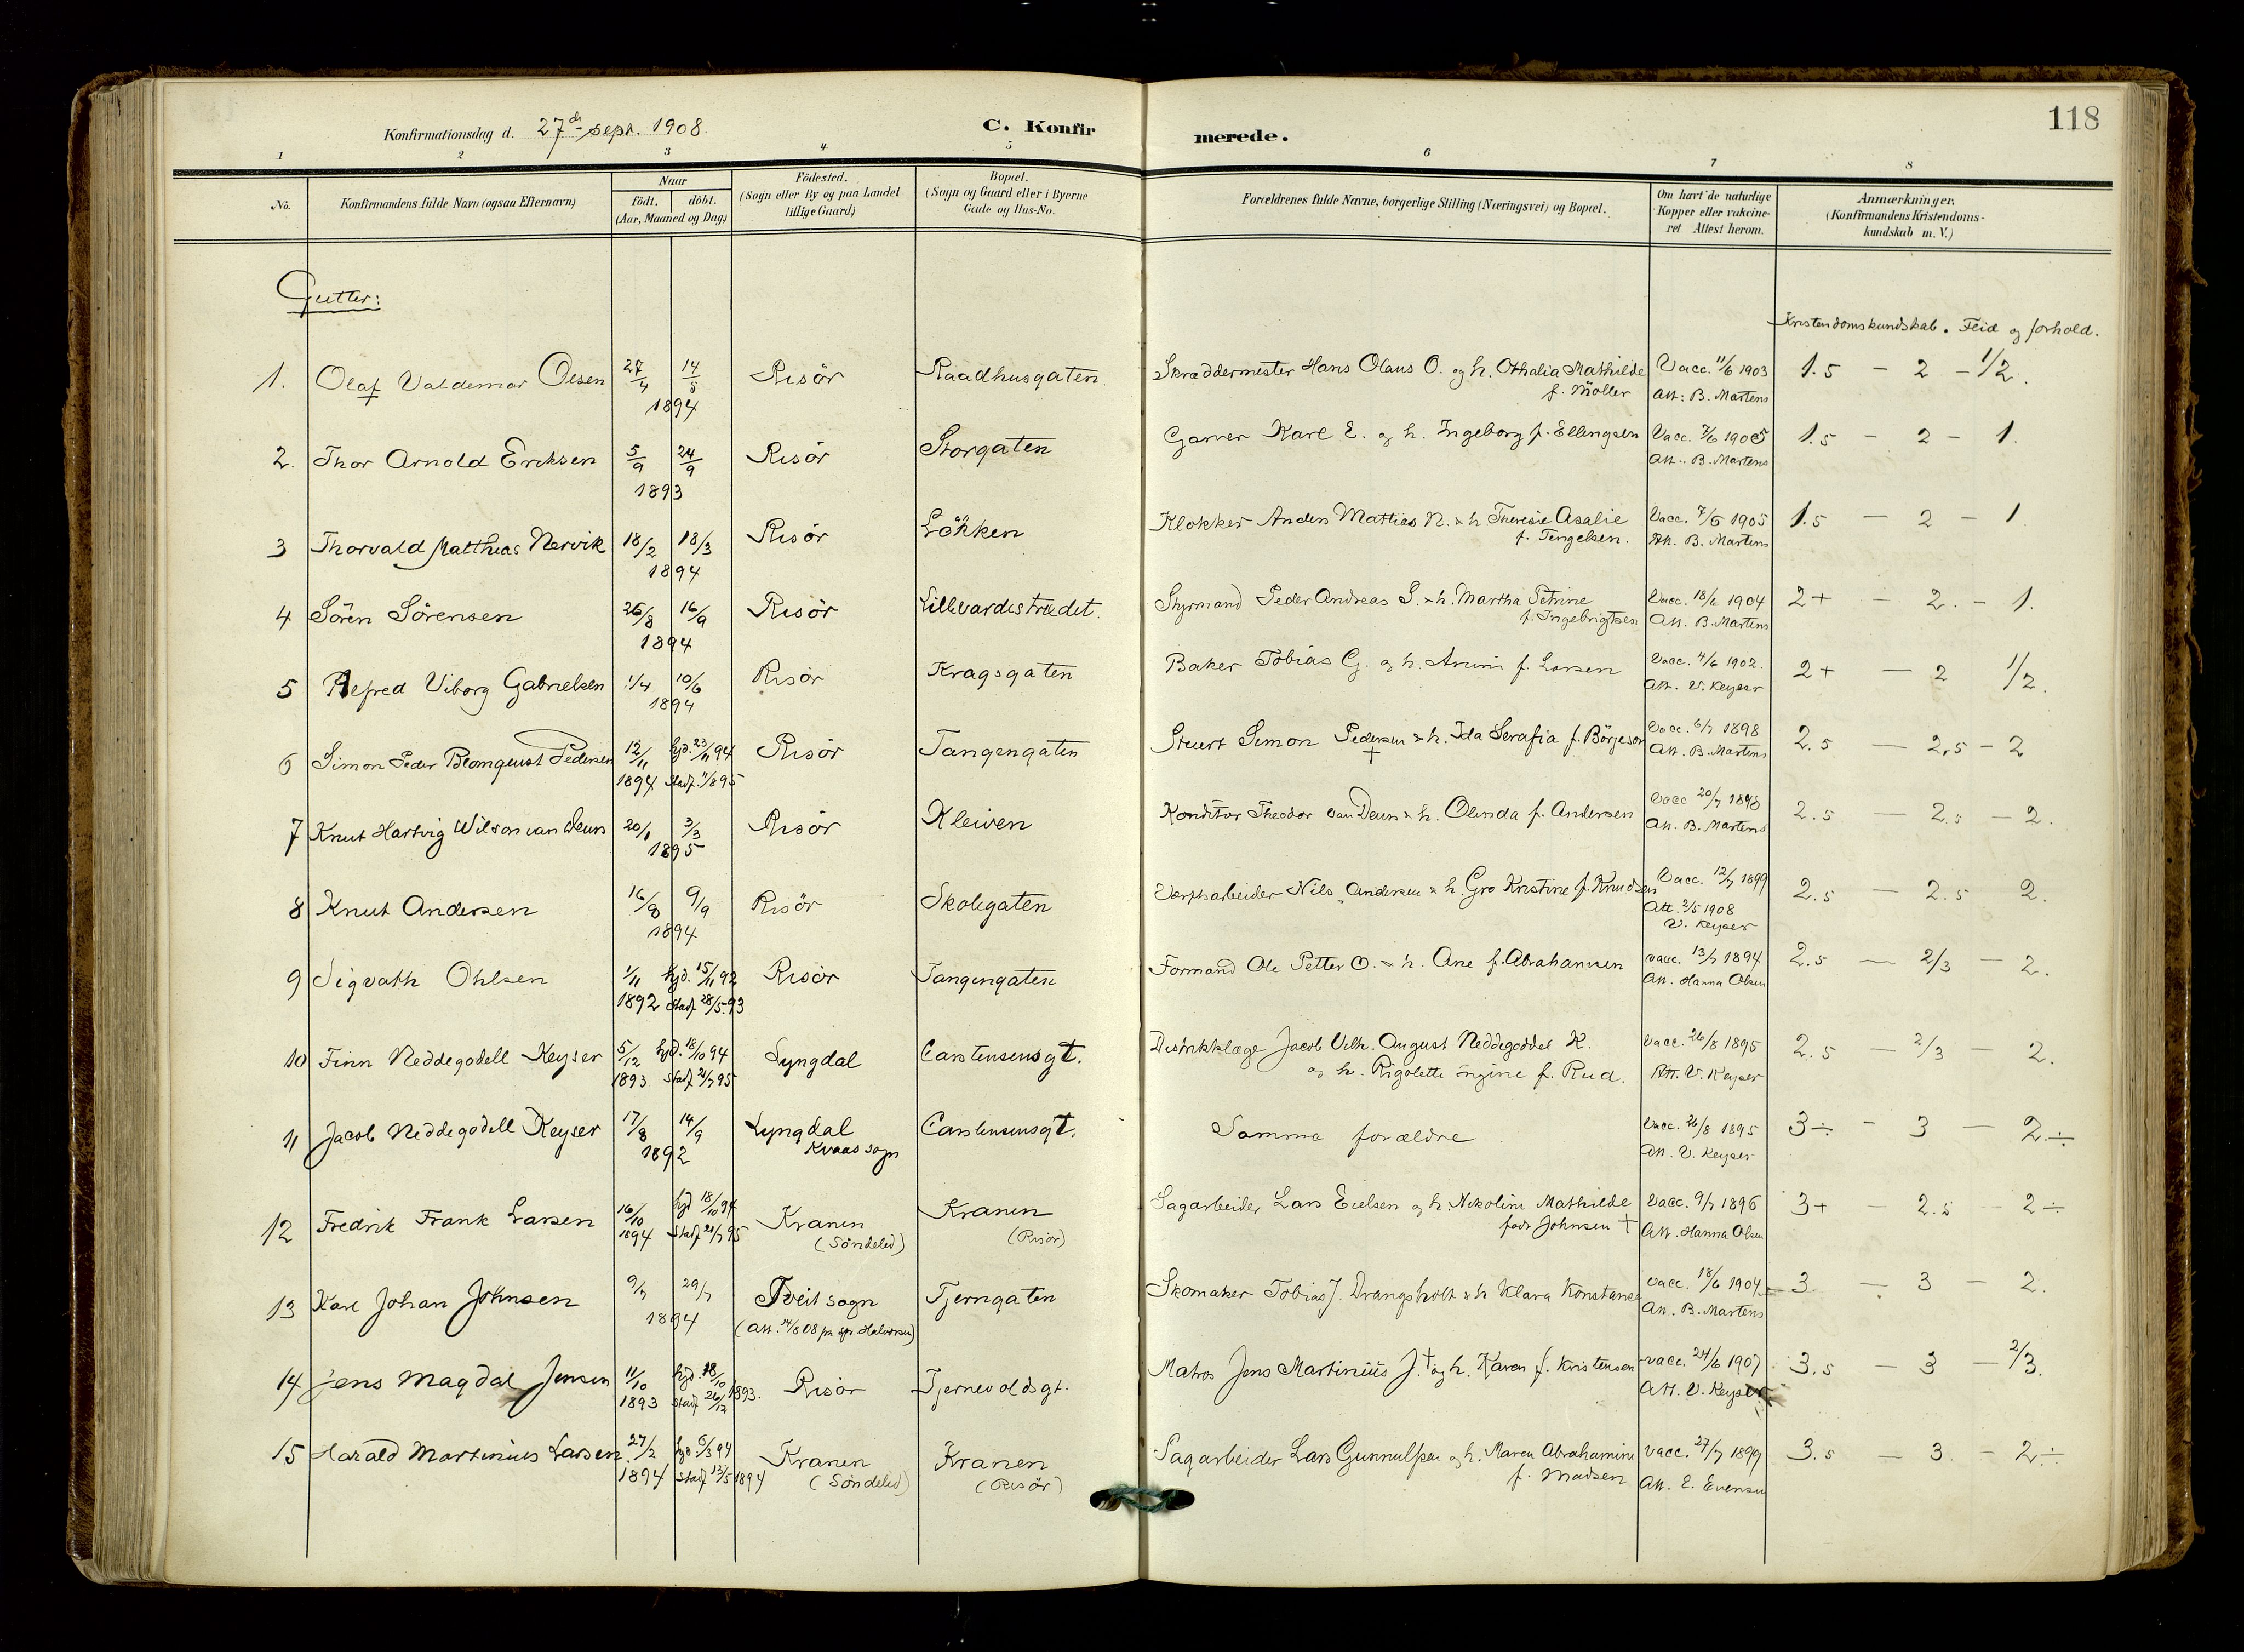 118
Konfirmationsdag d. 27de sept. 1908.
C. Konfirmerede.
1 2 3 4 5 6 7 8
No.
Konfirmandens fulde Navn (ogsaa Efternavn)
Naar
födt. döbt.
(Aar, Maaned og Dag)
Födested.
(Sogn eller By og paa Landet
tillige Gaard)
Bopæl.
(Sogn og Gaard eller i Byerne
Gade og Hus-No.
Forældrenes fulde Navne, borgerlige Stilling (Næringsvei) og Bopæl.
Om havt de naturlige
Kopper eller vakcine-
ret Attest herom.
Anmærkninger,
(Konfirmandens Kristendoms-
kundskab m. V.)
Gutter:
Kristendomskundskab. Flid og forhold.
1. Olaf Valdemar Olsen 27/4 14/5 Risör Raadhusgaten. Skræddermester Hans Olaus O. og h. Othalia Mathilde Vacc. 11/6 1903 1.5 – 2 – 1/2.
1894 f. Möller Att: B. Martens
2. Thor Arnold Eriksen 5/9 24/9 Risör Storgaten Garver Karl E. og h. Ingeborg f. Ellingsen Vacc. 7/6 1905 1.5 – 2 – 1.
1893 Att. B. Martens
3 Thorvald Matthias Nervik 18/2 18/3 Risör Lökken Klokker Anders Mattias N. & h. Theresie Asalie Vacc. 7/6 1905 1.5 – 2 – 1
1894 f. Tengelsen. Att. B. Martens
4 Sören Sörensen 26/8 16/9 Risör Lillevardestrædet. Styrmand Peder Andreas S. & h. Martha Petrine Vacc. 18/6 1904 2+ – 2. – 1.
1894 f. Ingebrigtsen Att. B. Martens
5 Alfred Viborg Gabrielsen 1/4 10/6 Risör Kragsgaten Baker Tobias G. og h. Anini f. Larsen Vacc. 4/6 1902. 2+ – 2 1/2.
1894 Att. V. Keyser
6 Simon Peder Blomquist Pedersen 12/11 hjd. 23/11 94 Risör Tangengaten Stuert Simon Pedersen † & h. Ida Serafia f. Börjeson Vacc. 6/7 1898 2.5 – 2,5 – 2
1894 Stadf. 11/8 95 Att. B. Martens
7 Knut Hartvig Wilson van Deurs 20/1 3/3 Risör Kleiven Konditor Theodor van Deurs & h. Olinda f. Andersen Vacc 20/7 1898 2.5 – 2.5 – 2.
1895 Att. B. Martens
8 Knut Andersen 16/8 9/9 Risör Skolegaten Værftsarbeider Nils Andersen & h. Gro Kristine f. Knudsen Vacc. 12/7 1899 2.5 – 2.5 2.
1894 Att. 2/5 1908
V. Keyser
9 Sigvath Ohlsen 1/11 hjd. 15/11 92 Risör Tangengaten Formand Ole Petter O. & h. Ane f. Abrahamsen Vacc. 13/7 1894 2.5 – 2/3 – 2.
1892 Stadf. 28/5.93 Att. Hanna Olsen
10 Finn Neddegodell Keyser 5/12 hjd. 18/10 94 Lyngdal Carstensensgt. Distriktslæge Jacob Vilh. August Neddegodell K. Vacc. 26/8 1895 2.5 – 2/3 – 2.
1893 Stadf 21/7 95 og h. Rigolette Ingine f. Rud. Att. V. Keyser
11 Jacob Neddegodell Keyser 17/8 14/9 Lyngdal Carstensensgt. Samme forældre Vacc. 26/8 1895 3÷ – 3 – 2.÷
1892 Kvaas sogn Att. V. Keyser
12 Fredrik Frank Larsen 16/10 hjd 18/10 94 Kranen Kranen Sagarbeider Lars Eielsen og h. Nikoline Mathilde Vacc. 9/7 1896 3+ – 2.5 – 2÷
1894 Stadf 21/7 95 (Söndeled) (Risör) født Johnsen † Att. Hanna Olsen
13 Karl Johan Johnsen 9/7 29/7 Tveit sogn Tjerngaten Skomaker Tobias J. Drangsholt & h Klara Konstance Vacc. 18/6 1904 3. – 3 – 2.
1894 (Att. 14/8 08 fra spr. Halvorsen) Att. B. Martens
14 Jens Magdal Jensen 11/10 hjd. 18/10 Risör Tjernvoldsgt. Matros Jens Martinius J. † og h. Karen f. Kristensen Vacc. 24/6 1907 3.5 – 3 – 2/3.
1893 Stadf 26/12 1893. Att. V. Keyser
15 Harald Martinius Larsen 27/2 hjd. 6/3 94 Kranen Kranen Sagarbeider Lars Gunnulfsen og h. Maren Abrahamine Vacc. 27/7 1899 3.5 – 3 – 2÷
1894 Stadf 13/5 1894 (Söndeled) (Risör) f. Madsen Att. E. Evensen